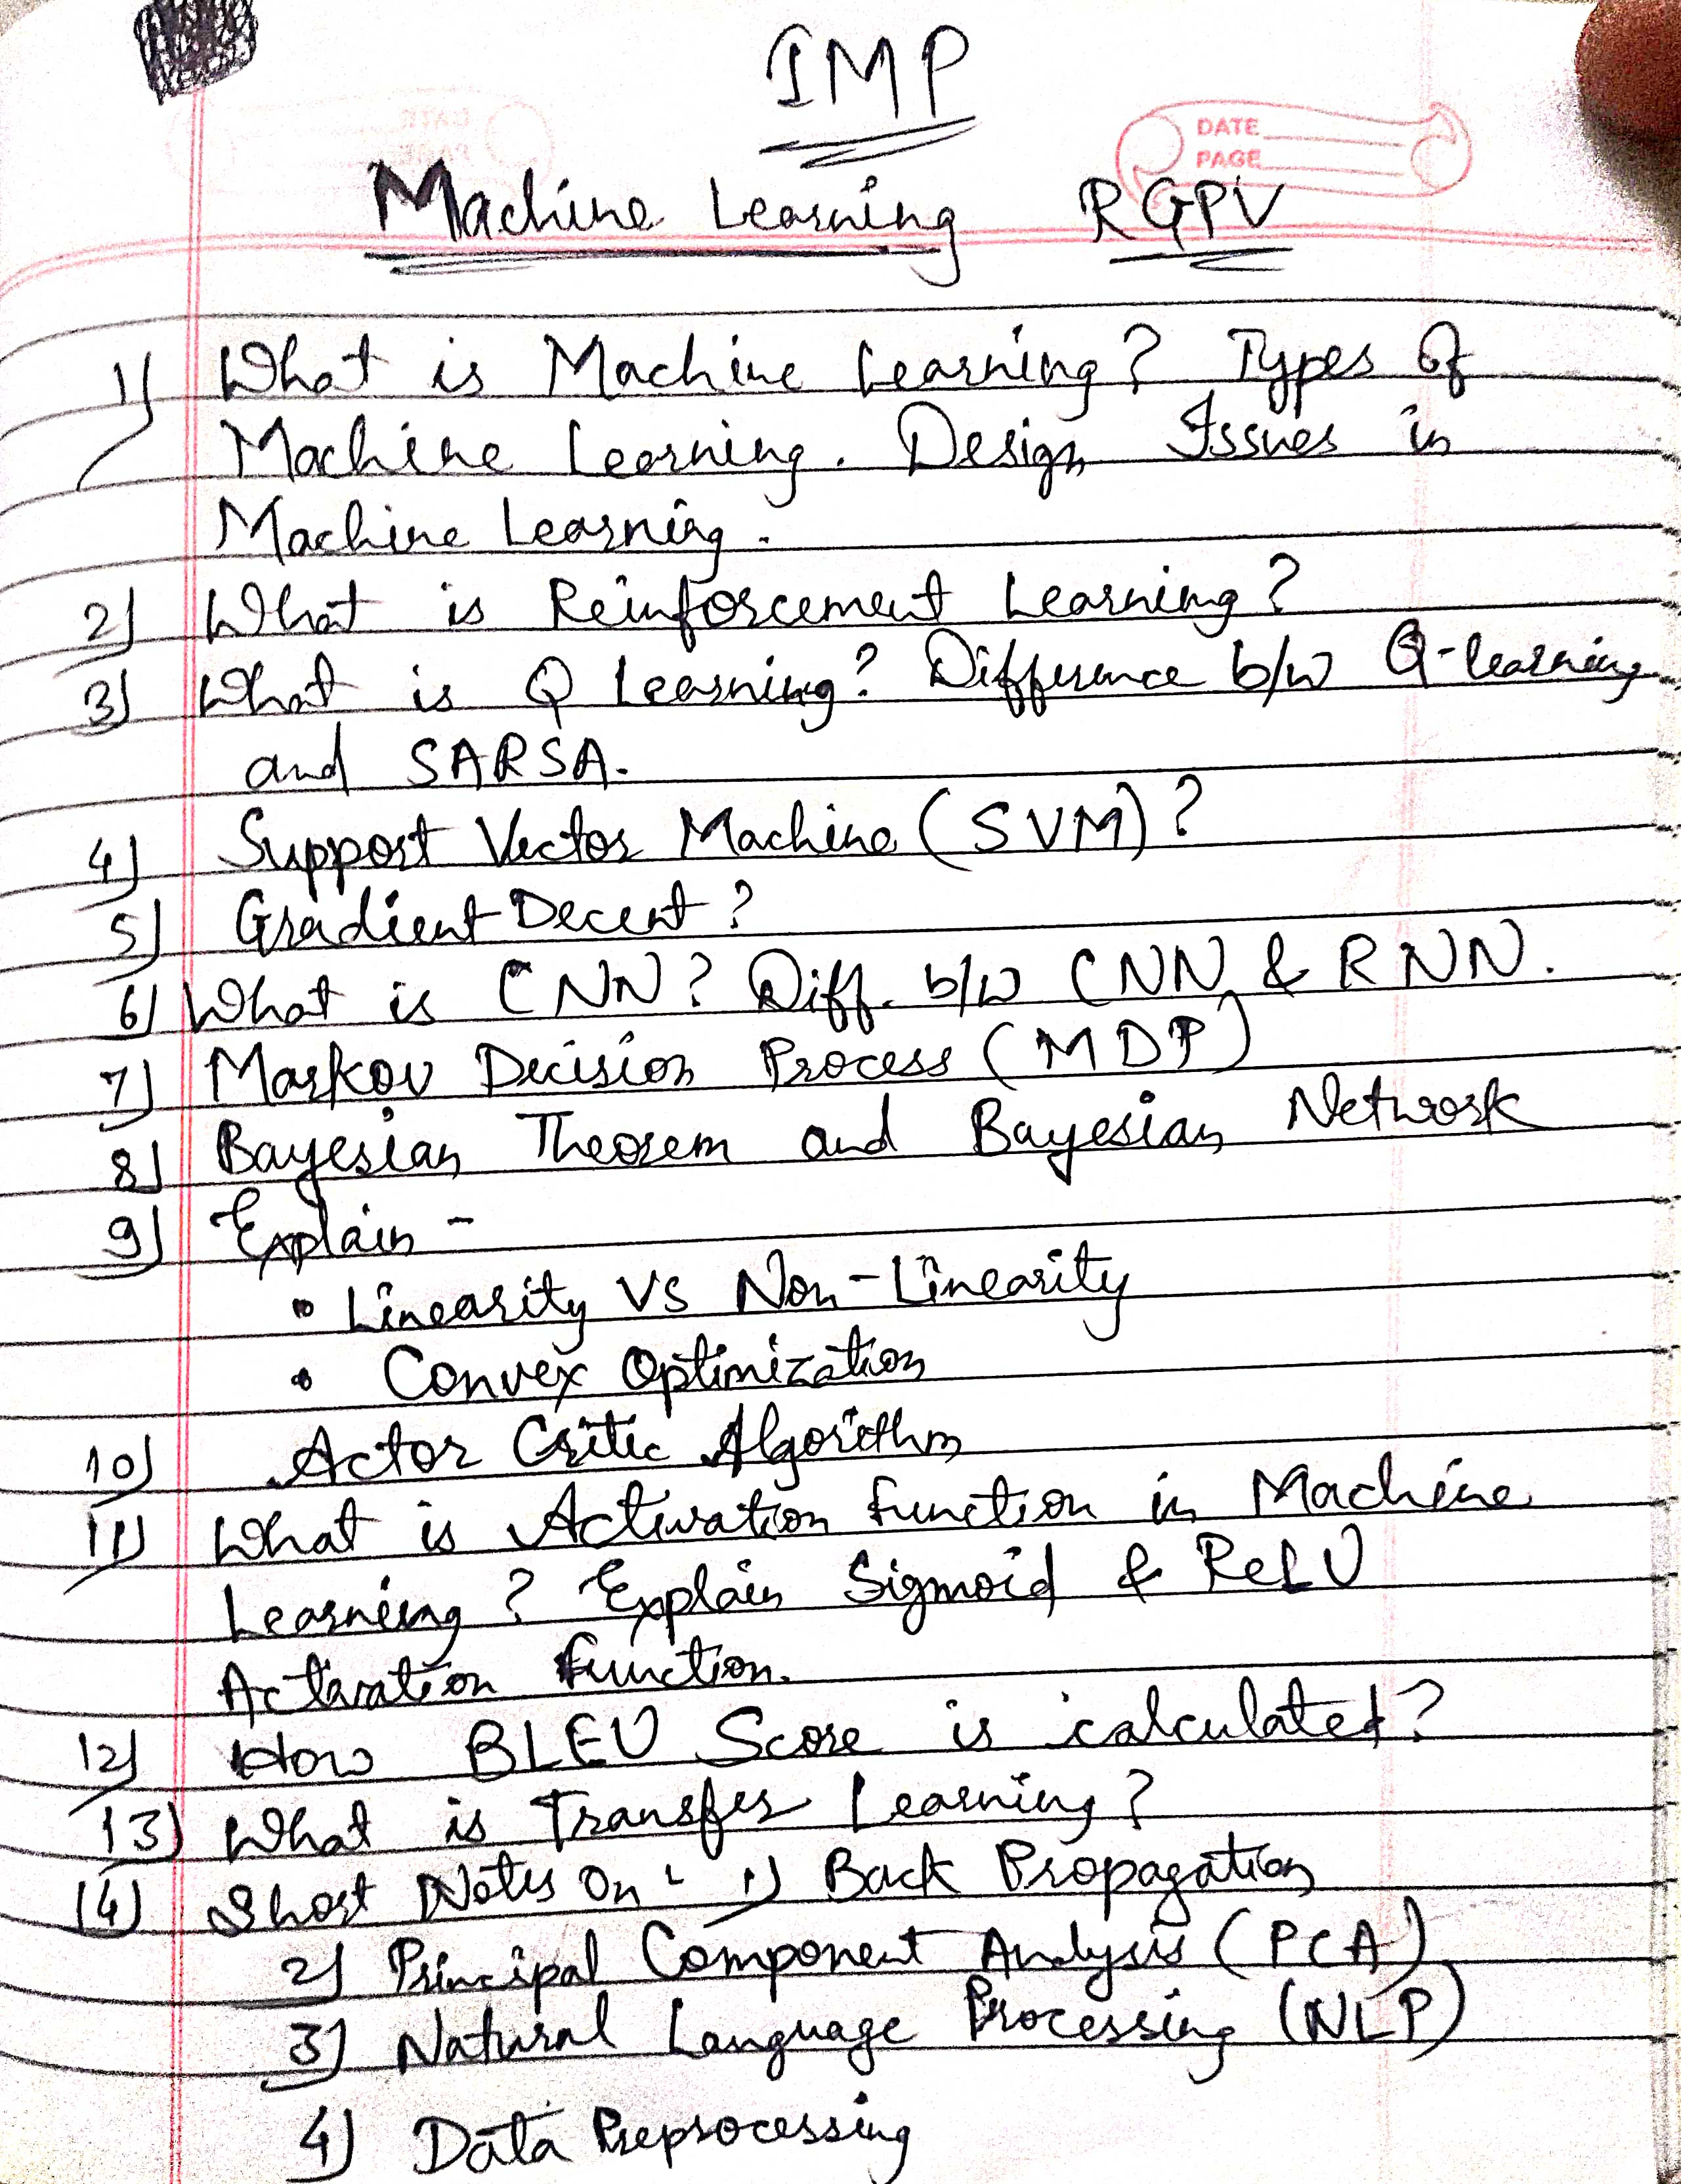 IMP
DATE
PAGE
Machine Learning RGPV
1) What is Machine Learning? Types Of
Machine Learning. Design Issues in
Machine Learning.
2) What is Reinforcement Learning?
3) What is Q Learning? Difference b/w Q-learning
and SARSA.
4) Support Vector Machine (SVM)?
5) Gradient Decent?
6) What is CNN? Diff. b/w CNN & RNN.
7) Markov Decision Process (MDP)
8) Bayesian Theorem and Bayesian Network
9) Explain -
• Linearity VS Non-Linearity
• Convex Optimization
10) Actor Critic Algorithm
11) What is Activation function in Machine
Learning? Explain Sigmoid & ReLU
Activation function.
12) How BLEU Score is calculated?
13) What is Transfer Learning?
14) Short Notes On: 1) Back Propagation
2) Principal Component Analysis (PCA)
3) Natural Language Processing (NLP)
4) Data Preprocessing